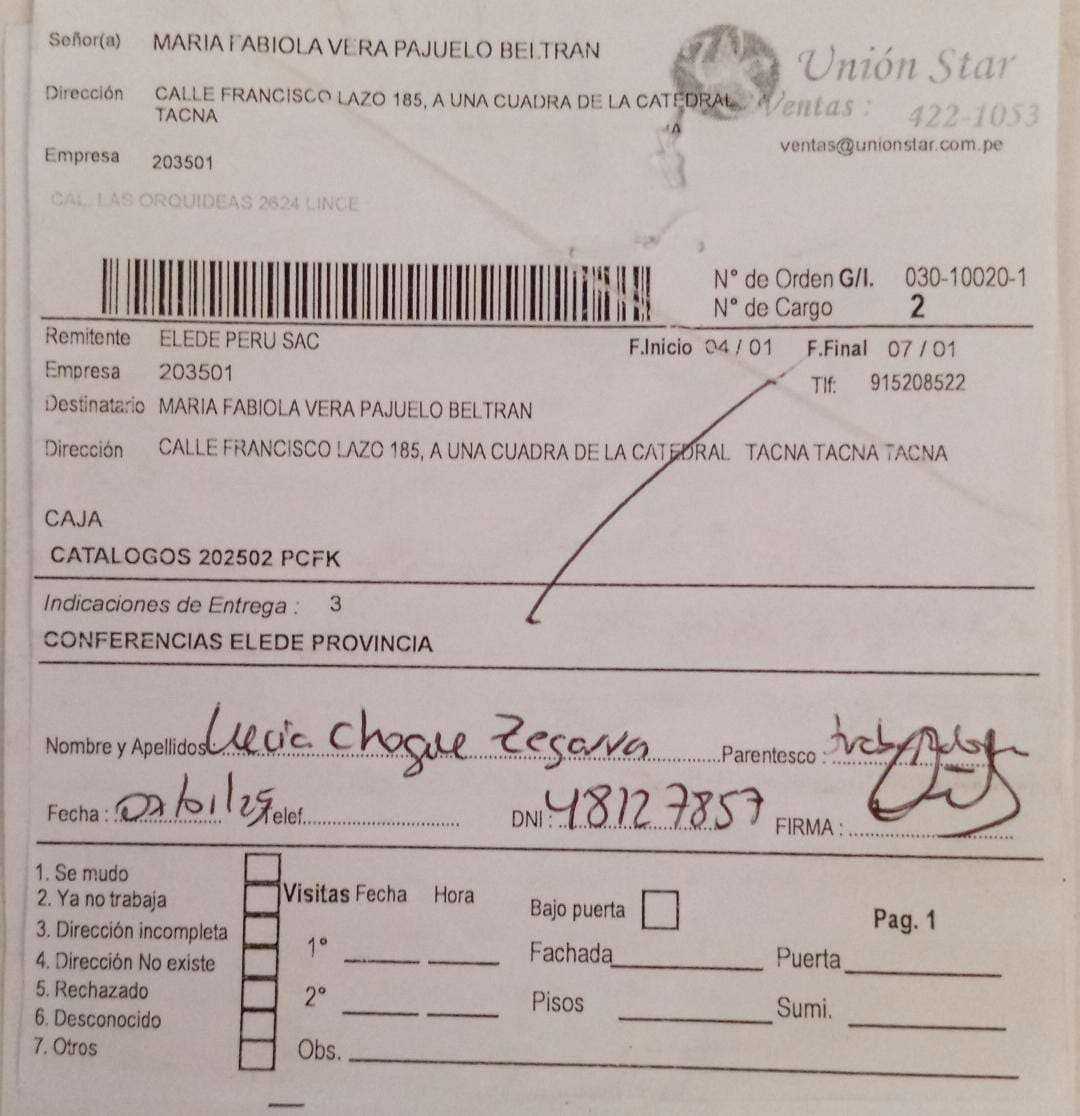 Señor(a) MARIA FABIOLA VERA PAJUELO BELTRAN
Unión Star
Dirección CALLE FRANCISCO LAZO 185, A UNA CUADRA DE LA CATEDRAL
TACNA
Ventas : 422-1053
ventas@unionstar.com.pe
Empresa 203501
CAL. LAS ORQUIDEAS 2624 LINCE
N° de Orden G/I. 030-10020-1
N° de Cargo 2
Remitente ELEDE PERU SAC
F.Inicio 04 / 01 F.Final 07 / 01
Empresa 203501
Tlf: 915208522
Destinatario MARIA FABIOLA VERA PAJUELO BELTRAN
Dirección CALLE FRANCISCO LAZO 185, A UNA CUADRA DE LA CATEDRAL TACNA TACNA TACNA
CAJA
CATALOGOS 202502 PCFK
Indicaciones de Entrega : 3
CONFERENCIAS ELEDE PROVINCIA
Nombre y Apellidos Choque Zegarra Parentesco :
Fecha : Telef. DNI : 48127857 FIRMA :
1. Se mudo
2. Ya no trabaja
3. Dirección incompleta
4. Dirección No existe
5. Rechazado
6. Desconocido
7. Otros
Visitas Fecha Hora
1°
2°
Obs.
Bajo puerta
Pag. 1
Fachada Puerta
Pisos Sumi.